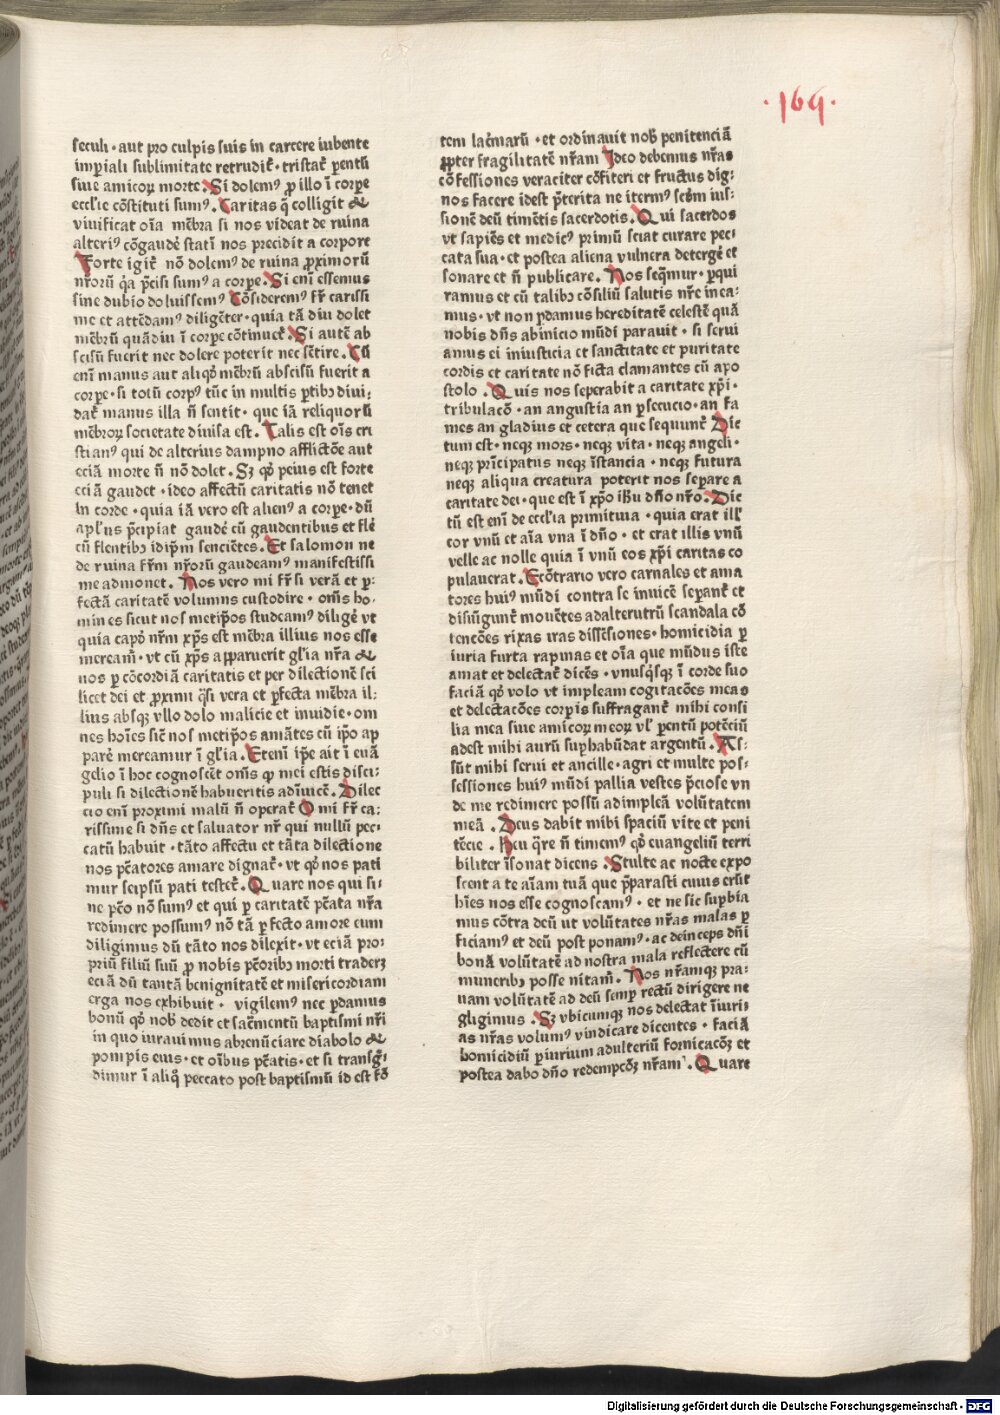 ·169·
seculi · aut pro culpis suis in carcere iubente
imꝑiali sublimitate retrudit᷑ · tristat᷑ ꝑentũ
siue amicoꝝ morte. Si dolemꝰ ꝓ illo ĩ corꝑe
eccľie cõstituti sumꝰ. Caritas q̃ colligit &
viuificat oĩa mẽbra si nos videat de ruina
alteriꝰ cõgaudẽ statĩ nos precidit a corpore
Forte igit᷑ nõ dolemꝰ de ruina ꝓximorũ
nr̃orũ q̃a p̃cisi sumꝰ a corꝑe. Si enĩ essemus
sine dubio doluissemꝰ Cõsideremꝰ fr̃ carissi
me et attẽdamꝰ diligẽter · quia tã diu dolet
mẽbrũ quãdiu ĩ corꝑe cõtinuet᷑. Si autẽ ab
scisũ fuerit nec dolere poterit nec sẽtire. Cũ
enĩ manus aut aliqđ mẽbrũ abscisũ fuerit a
corꝑe · si totũ corpꝰ tũc in multis ꝑtibꝫ diui,
dat᷑ manus illa ñ sentit · que iã reliquorũ
mẽbroꝝ societate diuisa est. Talis est oĩs cri
stianꝰ qui de alterius dampno afflictõe aut
eciã morte ñ nõ dolet. Sꝫ qđ peius est forte
eciã gaudet · ideo affectũ caritatis nõ tenet
in corde · quia iã vero est alienꝰ a corꝑe · dũ
apľus p̃cipiat gaudẽ cũ gaudentibus et flẽ
cũ flentibꝫ idip̃m senciẽtes. Et salomon ne
de ruina fr̃m nr̃orũ gaudeamꝰ manifestissi
me admonet. Nos vero mi fr̃ si verã et ꝑ-
fectã caritatẽ volumus custodire · om̃s ho-
mines sicut nosmetip̃os studeamꝰ diligẽ vt
quia capđ nr̃m xp̃s est mẽbra illius nos esse
meream᷑ · vt cũ xp̃s apparuerit gľia nr̃a &
nos ꝑ cõcordiã caritatis et per dilectionẽ sci
licet dei et ꝓximi q̃si vera et ꝑfecta mẽbra il:
lius absqꝫ vllo dolo malicie et inuidie · om
nes hoĩes sic nosmetip̃os amãtes cũ ip̃o ap
parẽ mereamur ĩ gľia. Etenĩ ip̃e ait ĩ euã
gelio ĩ hoc cognoscẽt om̃s ꝙ mei estis disci:
puli si dilectionẽ habueritis adĩuicẽ. Dilec
cio enĩ proximi malũ ñ operat᷑ O mi fr̃ ca:
rissime si dñs et saluator nr̃ qui nullũ pec:
catũ habuit · tãto affectu et tãta dilectione
nos p̃catores amare dignat᷑ · vt qđ nos pati
mur seipsũ pati testet᷑. Quare nos qui si:
ne p̃co nõ sumꝰ et qui ꝑ caritatẽ p̃cata nr̃a
redimere possumꝰ nõ tã ꝑfecto amore eum
diligimus dũ tãto nos dilexit · vt eciã pro:
priũ filiũ suũ ꝓ nobis p̃coribꝫ morti traderꝫ
eciã dũ tantã benignitatẽ et misericordiam
erga nos exhibuit · vigilemꝰ nec ꝑdamus
bonũ qđ nob̃ dedit et sac̃mentũ baptismi nr̃i
in quo iurauimus abrenũciare diabolo &
pompis eius · et oĩbus p̃catis · et si transg̃:
dimur ĩ aliq̃ peccato post baptismũ id est fõ
tem lac̃marũ · et ordinauit nob̃ penitenciã
ꝓpter fragilitatẽ nr̃am Ideo debemus nr̃as
cõfessiones veraciter cõfiteri et fructus dig:
nos facere idest p̃terita ne itermꝰ scđm ius:
sionẽ deũ timẽtis sacerdotis. Qui sacerdos
vt sapiẽs et medicꝰ primũ sciat curare pec:
cata sua · et postea aliena vulnera detergẽ et
sonare et ñ publicare. Nos seq̃mur · ꝑqui
ramus et cũ talibꝫ cõsiliũ salutis nr̃e inea:
mus · vt non ꝑdamus hereditatẽ celestẽ quã
nobis dñs abinicio mũdi parauit · si serui
amus ei iniusticia et sanctitate et puritate
cordis et caritate nõ ficta clamantes cũ apo
stolo. Quis nos seperabit a caritate xp̃i ·
tribulacõ · an angustia an ꝑsecucio · an fa
mes an gladius et cetera que sequunt᷑ Dic
tum est · neqꝫ mors · neqꝫ vita · neqꝫ angeli ·
neqꝫ prĩcipatus neqꝫ ĩstancia · neqꝫ futura
neqꝫ aliqua creatura poterit nos seꝑare a
caritate dei · que est ĩ xp̃o ih̃u dño nr̃o. Dic
tũ est enĩ de eccľia primitiua · quia erat ilľ
cor vnũ et aĩa vna ĩ dño · et erat illis vnũ
velle ac nolle quia ĩ vnũ eos xp̃i caritas co
pulauerat. Ecõtrario vero carnales et ama
tores huiꝰ mũdi contra se inuicẽ seꝑant᷑ et
disiũgunt᷑ mouẽtes adalterutrũ scandala cõ
tencões rixas iras dissẽsiones · homicidia ꝑ
iuria furta rapinas et oĩa que mũdus iste
amat et delectat᷑ dicẽs · vnusq̃sqꝫ ĩ corde suo
faciã qđ volo vt impleam cogitacões meas
et delectacões corꝑis suffragant᷑ mihi consi
lia mea siue amicoꝝ meoꝝ vľ ꝑentũ potẽciũ
adest mihi aurũ suꝑhabũdat argentũ. As:
sũt mihi serui et ancille · agri et multe pos:
sessiones huiꝰ mũdi pallia vestes p̃ciose vn
de me redimere possũ adimpleã volũtatem
meã. Deus dabit mihi spaciũ vite et peni
tẽcie. Heu q̃re ñ timemꝰ qđ euangeliũ terri
biliter ĩsonat dicens. Stulte ac nocte expo
scent a te aĩam tuã que p̃parasti cuius erũt
hĩes nos esse cognoscamꝰ · et ne sic suꝑbia
mus cõtra deũ ut volũtates nr̃as malas ꝑ
ficiamꝰ et deũ post ponamꝰ · ac deinceps dñi
bonã volũtatẽ ad nostra mala reflectere cũ
muneribꝫ posse nitam᷑. Nos nr̃amqꝫ pra:
uam volũtatẽ ad deũ semꝑ rectũ dirigere ne
gligimus. Sꝫ vbicumqꝫ nos delectat ĩiuri:
as nr̃as volumꝰ vindicare dicentes · faciã
homicidiũ ꝑiurium adulteriũ fornicacõꝫ et
postea dabo dño redempcõꝫ nr̃am. Quare
Digitalisierung gefördert durch die Deutsche Forschungsgemeinschaft · DFG